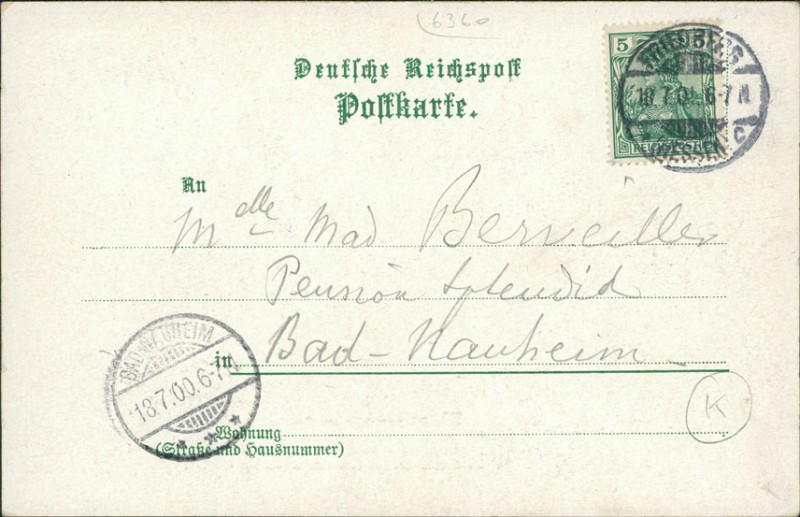 6360
5
FRIEDBERG
18.7.00 6-7 N
HESSEN C
REICHSPOST
Deutsche Reichspost
Postkarte.
An
Mdelle Mad
Pension Splendid
in Bad-Nauheim
BAD-NAUHEIM
18.7.00.6-7
K
Wohnung
(Straße und Hausnummer)